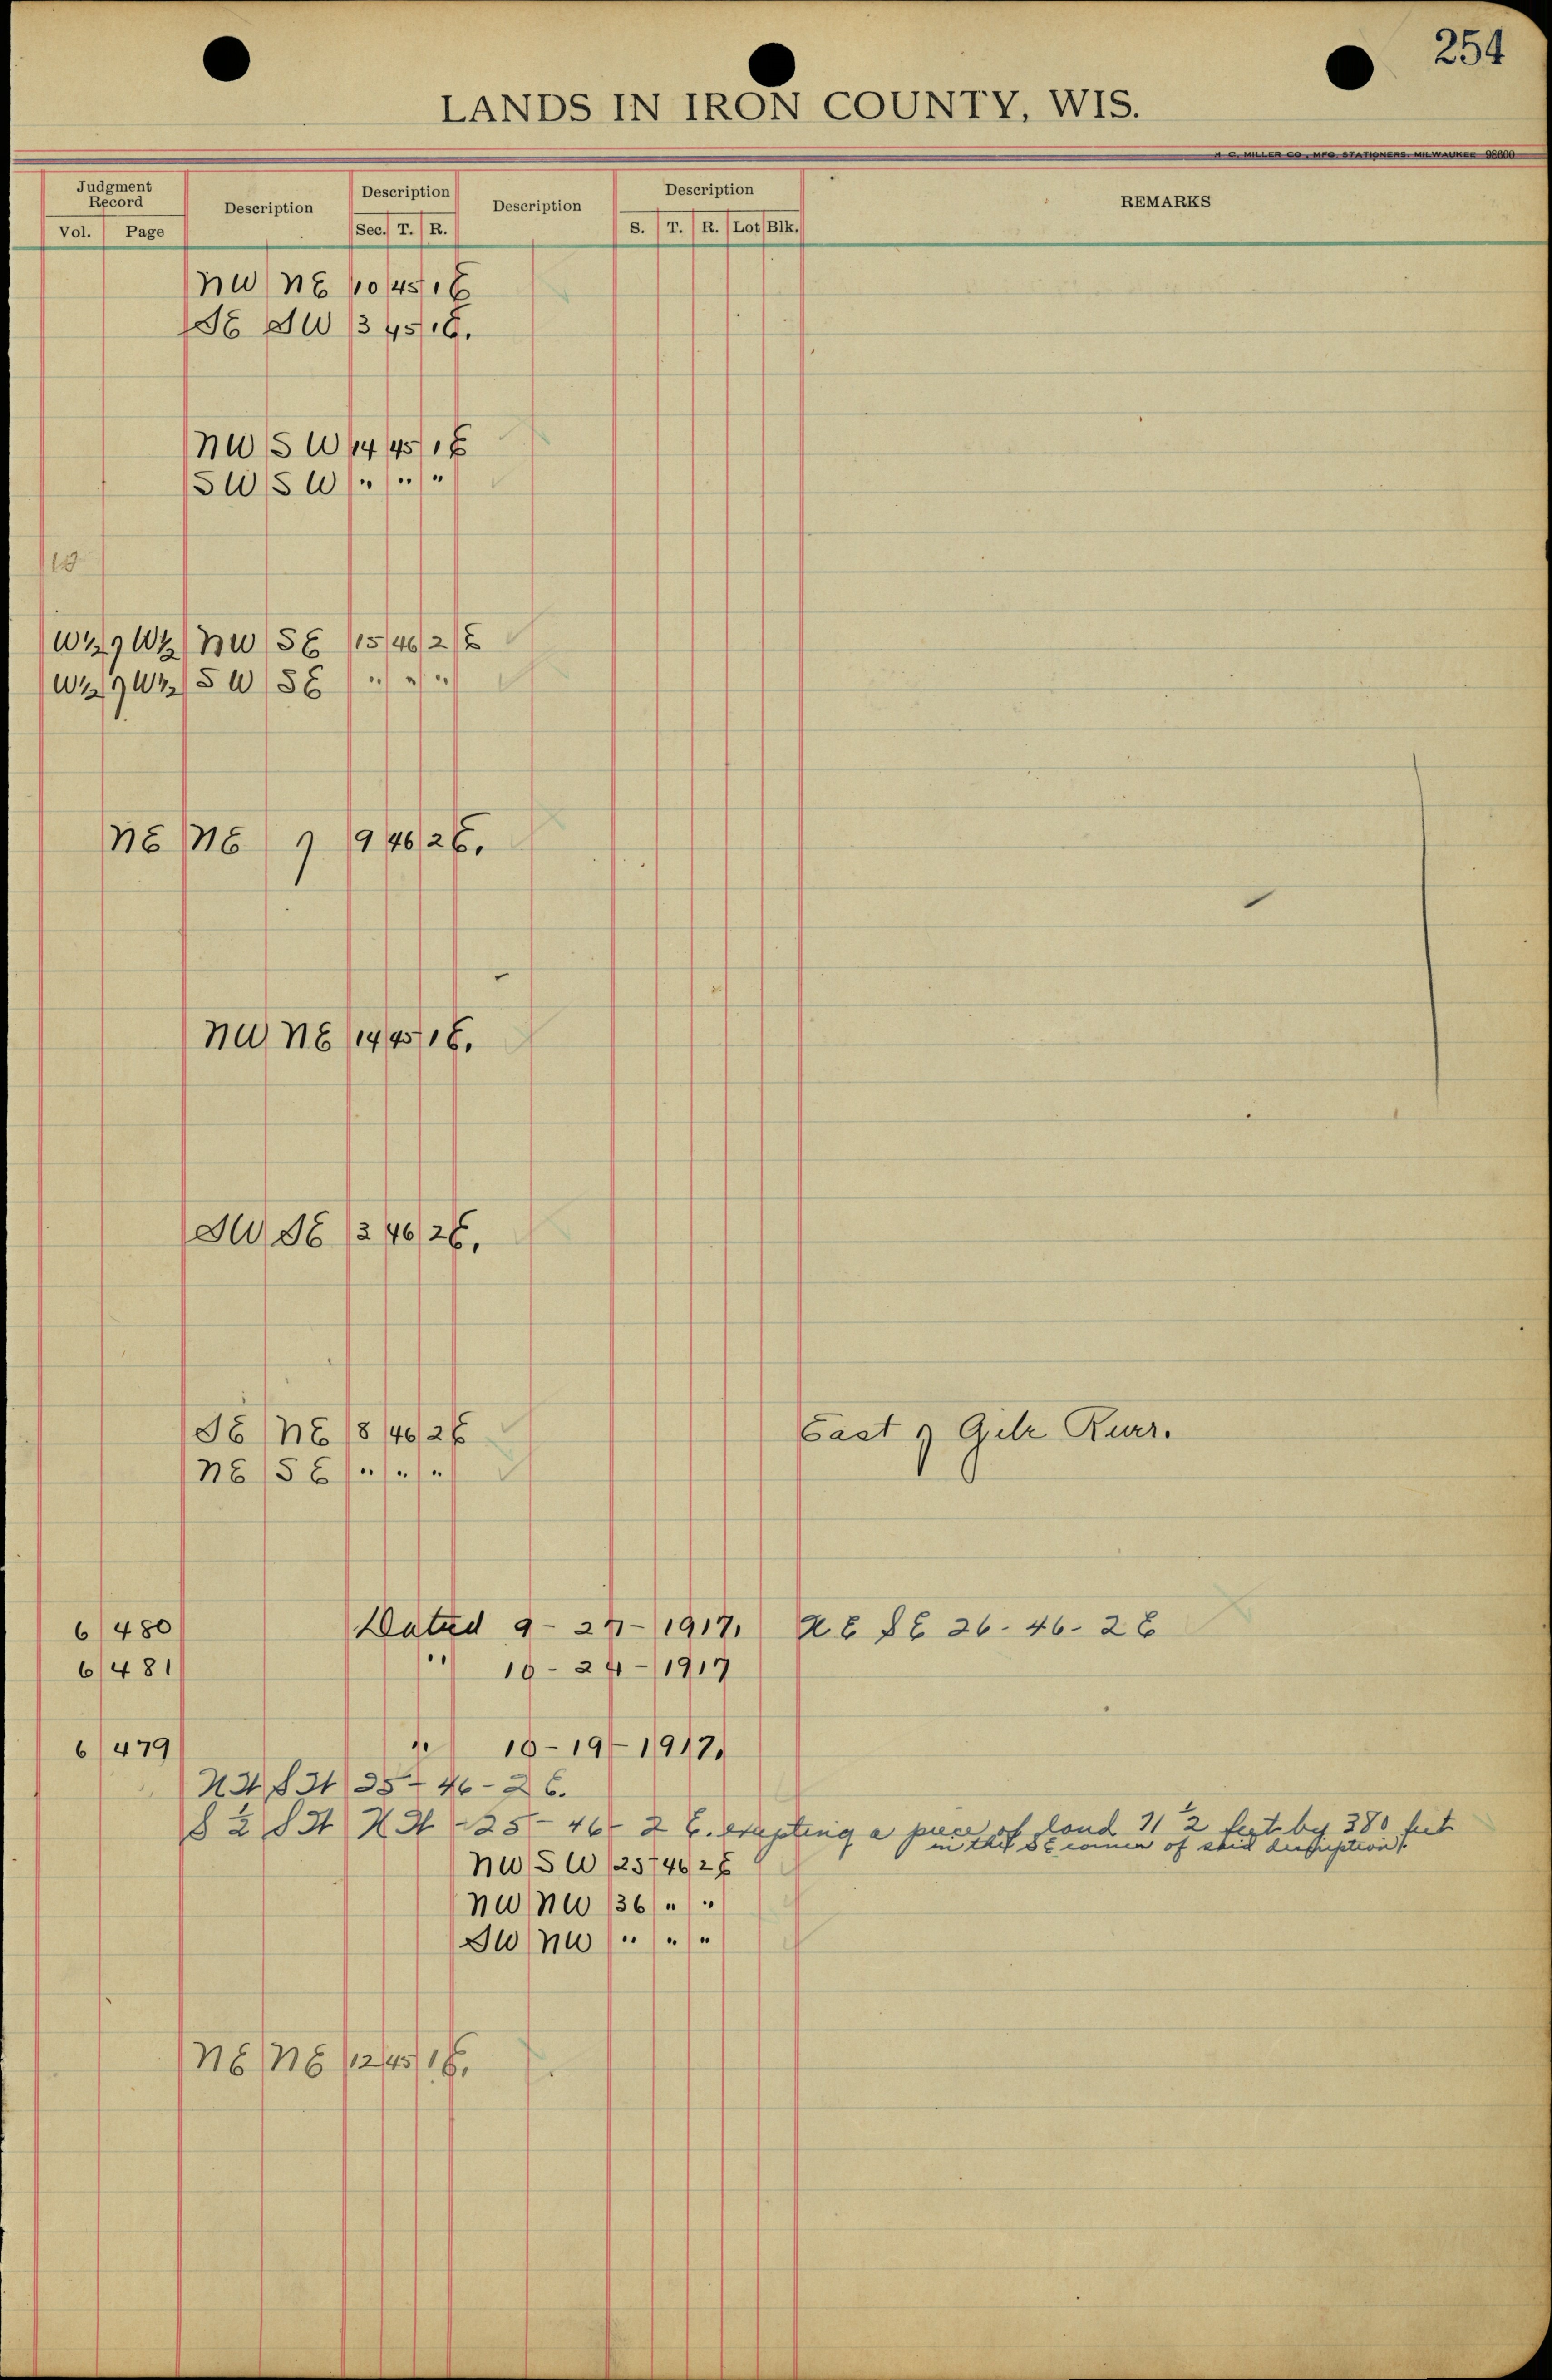 254
LANDS IN IRON COUNTY, WIS.
H. C. MILLER CO., MFG. STATIONERS, MILWAUKEE 98600
Judgment Record Description Description Description Description REMARKS
Vol. Page Sec. T. R. S. T. R. Lot Blk.
NW NE 10 45 1 E
SE SW 3 45 1 E.
NW SW 14 45 1 E
SW SW " " "
10
W½ of W½ NW SE 15 46 2 E
W½ of W½ SW SE " " "
NE NE of 9 46 2 E.
NW NE 14 45 1 E.
SW SE 3 46 2 E.
SE NE 8 46 2 E East of Gile River.
NE SE " " "
6 480 Dated 9-27-1917. NE SE 26-46-2E
6 481 " 10-24-1917
6 479 " 10-19-1917.
NW SW 25-46-2E.
S½ SW NW -25-46-2 E. excepting a piece of land 71½ feet by 380 feet
in the SE corner of said description.
NW SW 25 46 2 E
NW NW 36 " "
SW NW " " "
NE NE 12 45 1 E.